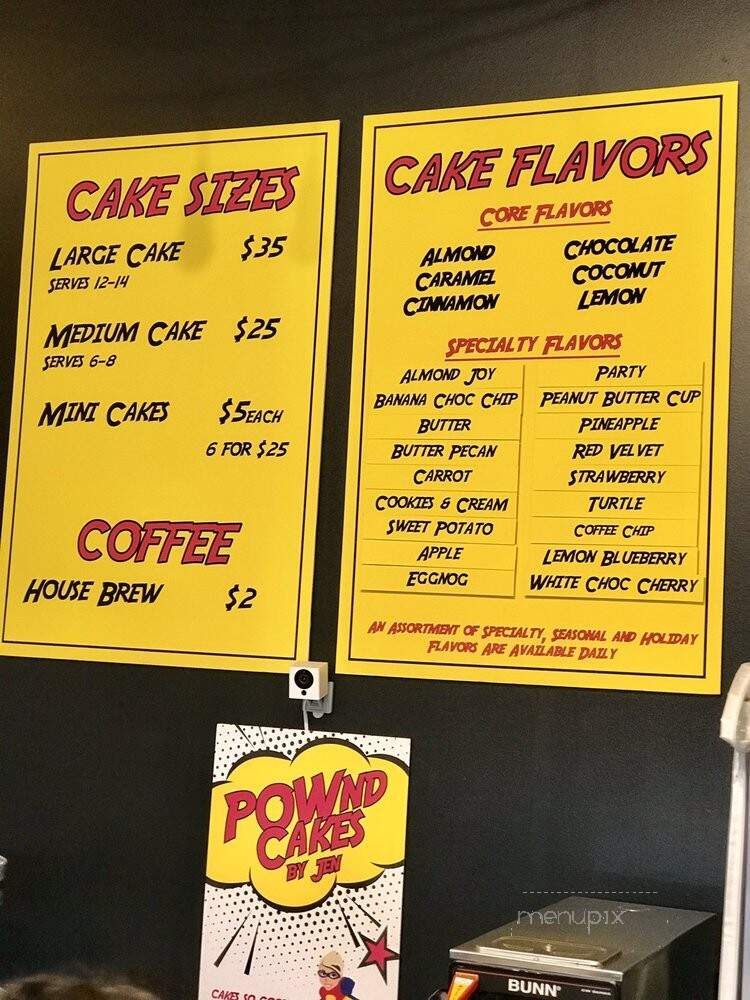 CAKE SIZES
LARGE CAKE $35
SERVES 12-14
MEDIUM CAKE $25
SERVES 6-8
MINI CAKES $5 EACH
6 FOR $25
COFFEE
HOUSE BREW $2
CAKE FLAVORS
CORE FLAVORS
ALMOND CHOCOLATE
CARAMEL COCONUT
CINNAMON LEMON
SPECIALTY FLAVORS
ALMOND JOY PARTY
BANANA CHOC CHIP PEANUT BUTTER CUP
BUTTER PINEAPPLE
BUTTER PECAN RED VELVET
CARROT STRAWBERRY
COOKIES & CREAM TURTLE
SWEET POTATO COFFEE CHIP
APPLE LEMON BLUEBERRY
EGGNOG WHITE CHOC CHERRY
AN ASSORTMENT OF SPECIALTY, SEASONAL AND HOLIDAY
FLAVORS ARE AVAILABLE DAILY
POWND
CAKES
BY JEN
CAKES SO
menupix
BUNN